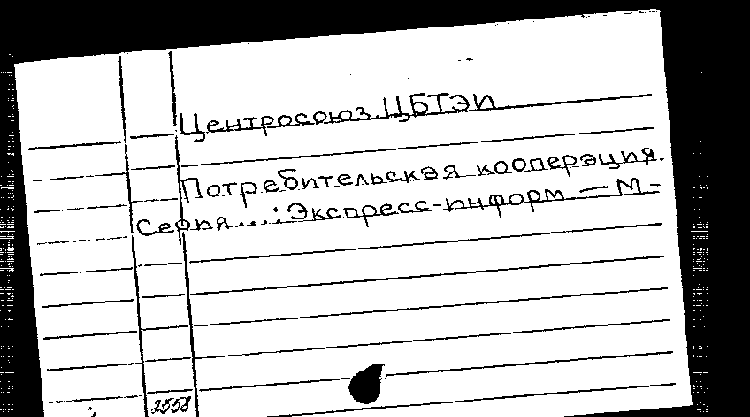 Центросоюз. ЦБТЭИ
Потребительская кооперация.
Серия...: Экспресс-информ. — М-
2558